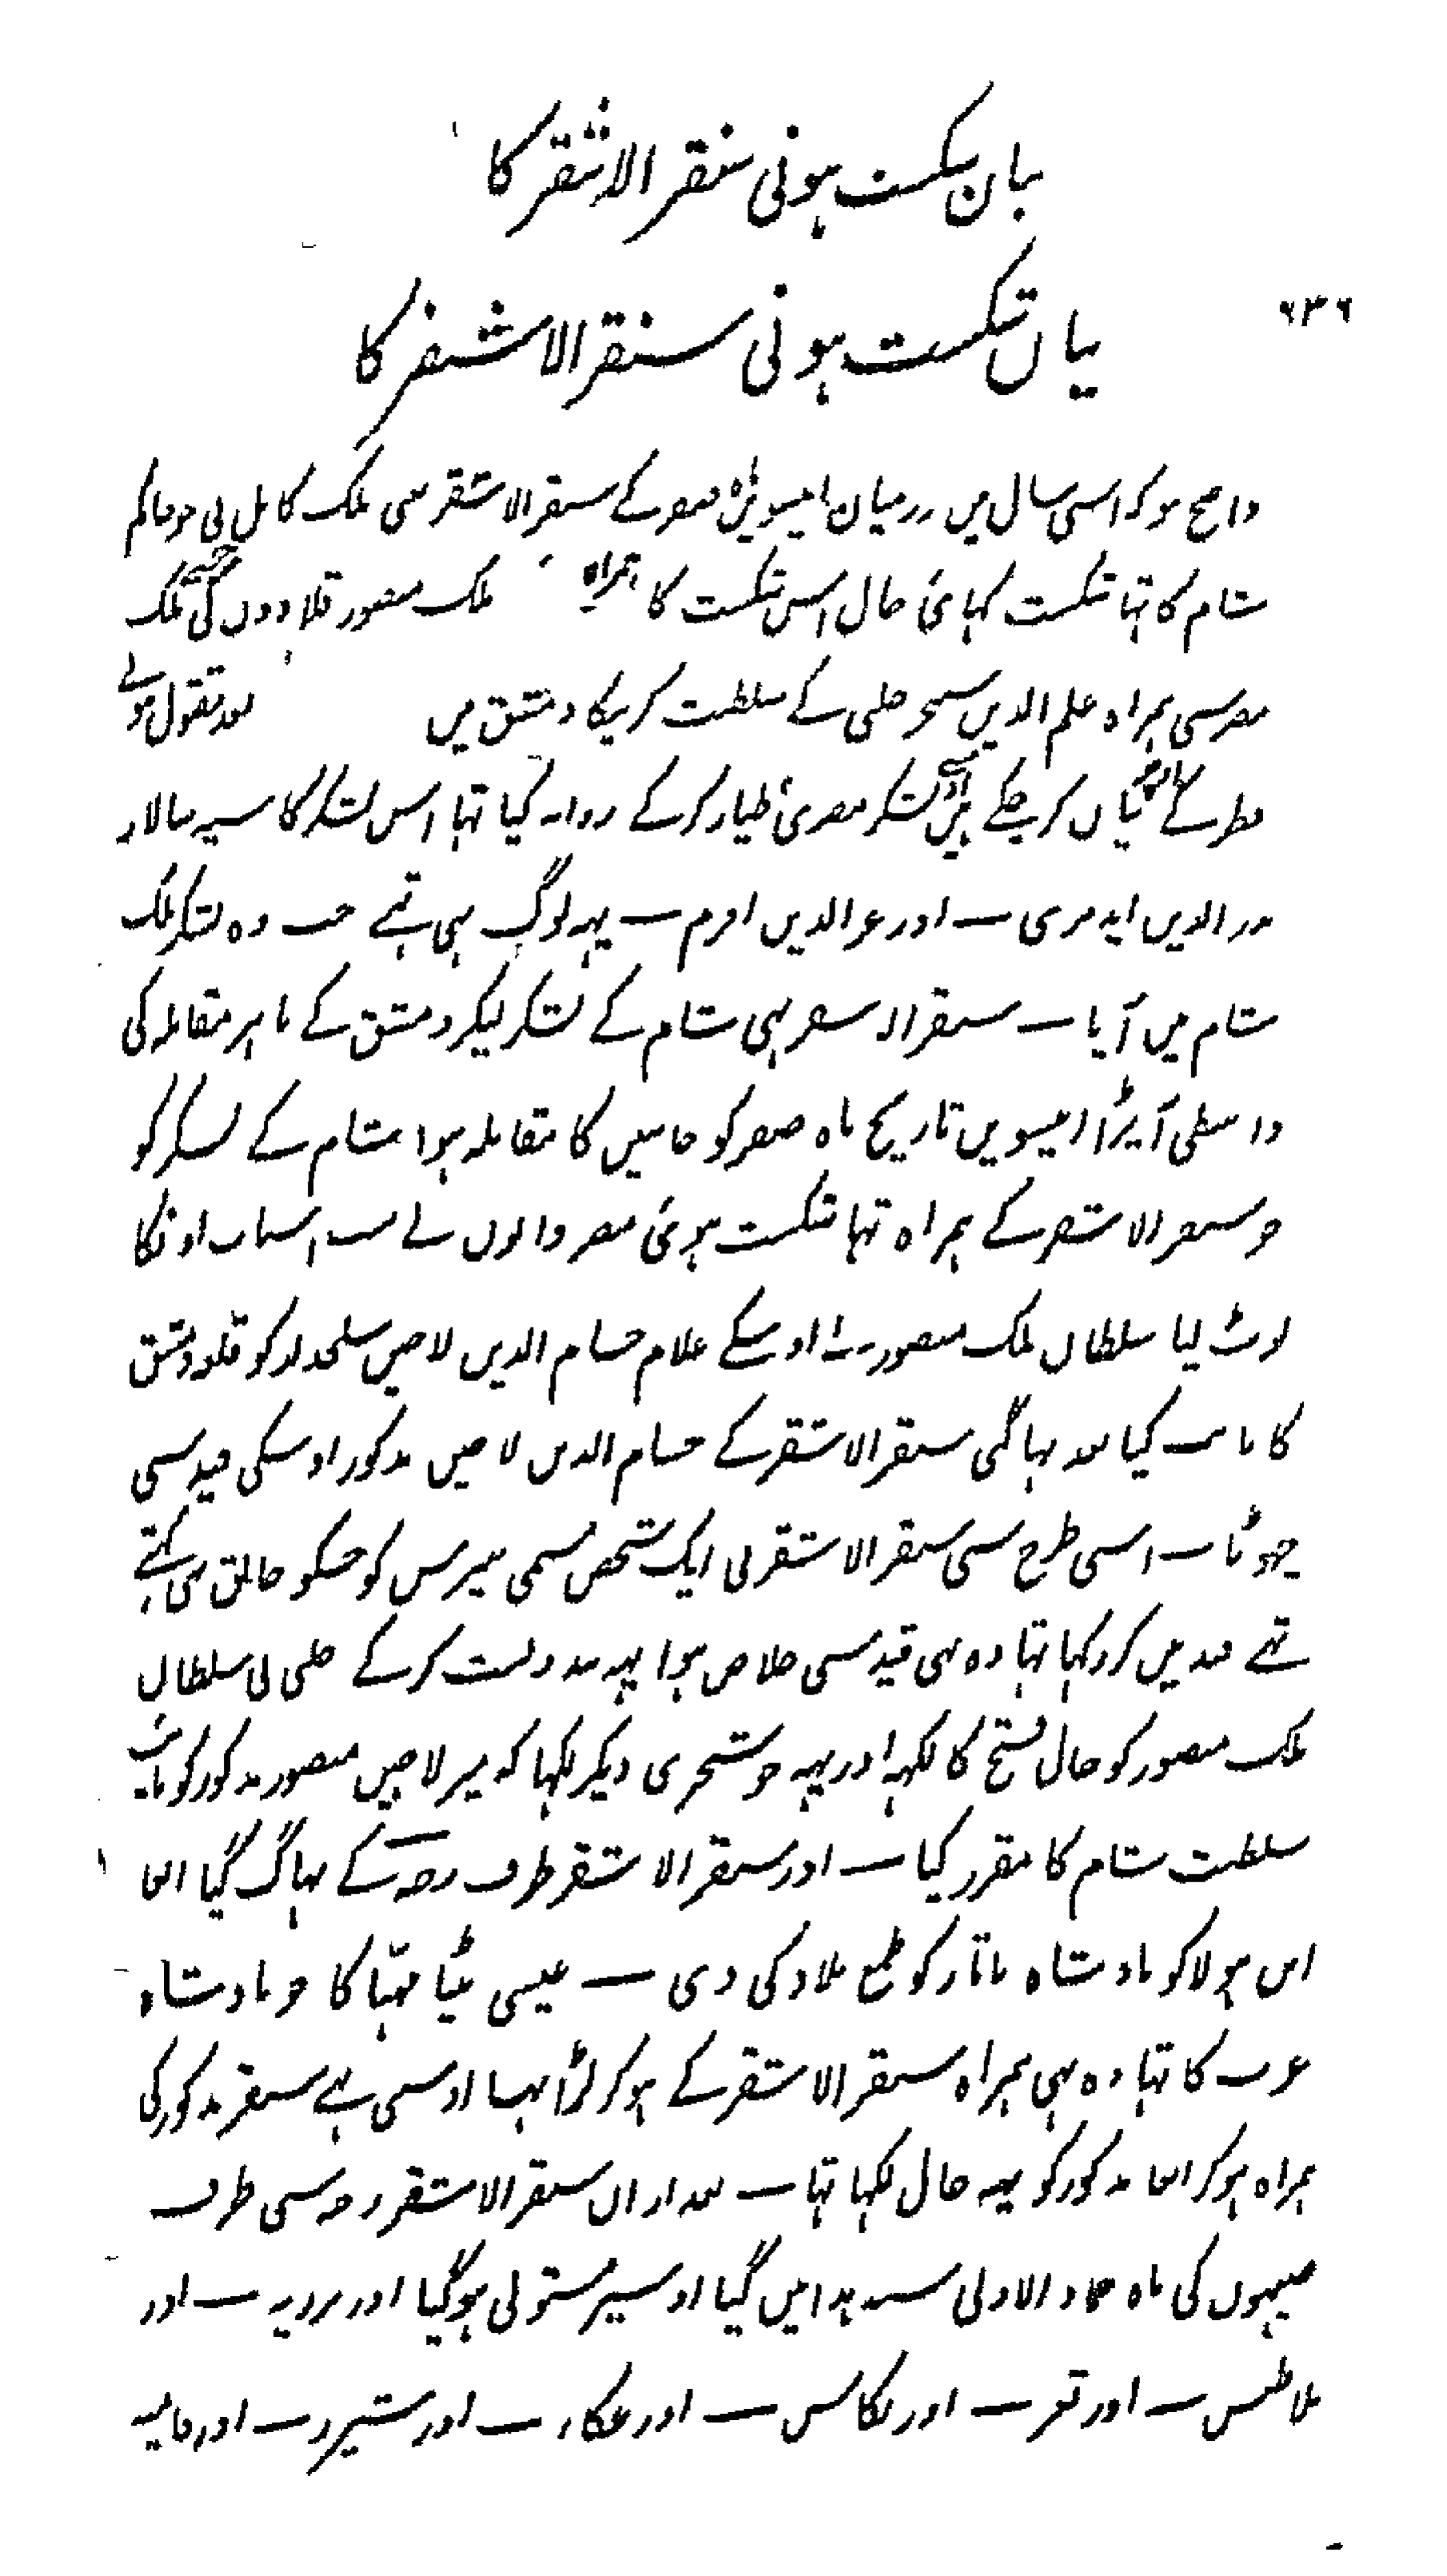 بیان شکست ہونی سنقر الاشقر کا
۶۳۶
بیان شکست ہونی سنقر الاشقر کا
واضح ہو کہ اسی سال میں درمیان انیسویں ماہ صفر کے سنقر الاشقر سی ملک کامل نی جو حاکم
شام کا تہا شکست کہائی حال اس شکست کا ہمراہ ملک منصور قلاوون کی ملک
مصر سی ہمراہ علم الدین سنجر حلبی کے سلطنت کریگا دمشق میں بعد مقتول ہونے
کے بیان کر چکے ہیں لشکر مصری طیار کر کے روانہ کیا تہا اس لشکر کا سپہ سالار
بدر الدین ایدمری ـ اور عز الدین افرم ـ یہہ لوگ بہی تہے جب وہ لشکر ملک
شام میں آیا ـ سنقر الاشقر بہی شام کے لشکر لیکر دمشق کے باہر مقابلہ کی
واسطی آ پڑا انیسویں تاریخ ماہ صفر کو جانبین کا مقابلہ ہوا شام کے لشکر کو
جو سنقر الاشقر کے ہمراہ تہا شکست ہوئی مصر والوں نے سب اسباب اونکا
لوٹ لیا سلطان ملک منصور نے اوسکے غلام حسام الدین لاجین سلحدار کو قلعہ دمشق
کا نائب کیا بعد بہاگنی سنقر الاشقر کے حسام الدین لاجین مذکور اوسکی قید سی
چہوٹا ـ اسی طرح سی سنقر الاشقر نی ایک شخص مسمی بیبرس کو جسکو جالق بہی کہتے
تہے قید میں کر رکہا تہا وہ بہی قید سی خلاص ہوا یہہ بندوبست کر کے حلبی نی سلطان
ملک منصور کو حال فتح کا لکہہ اور یہہ خوشخبری دیکر لکہا کہ میں لاجین منصور مذکور کو نائب
سلطنت شام کا مقرر کیا ـ اور سنقر الاشقر طرف رحبہ کے بہاگ گیا ابغا
ابن ہولاکو بادشاہ تاتار کو طمع بلاد کی دی ـ عیسی بیٹا مہنا کا جو بادشاہ
عرب کا تہا وہ بہی ہمراہ سنقر الاشقر کے ہو کر لڑا تہا اوسی نے سنقر مذکور کی
ہمراہ ہو کر ابغا مذکور کو یہہ حال لکہا تہا ـ بعد ازاں سنقر الاشقر رحبہ سی طرف
صیہون کی ماہ جماد الاولی سنہ ہذا میں گیا اوسپر مستولی ہو گیا اور برزیہ ـ اور
بلاطنس ـ اور شغر ـ اور بکاس ـ اور عکار ـ اور شیزر ـ اور فامیہ